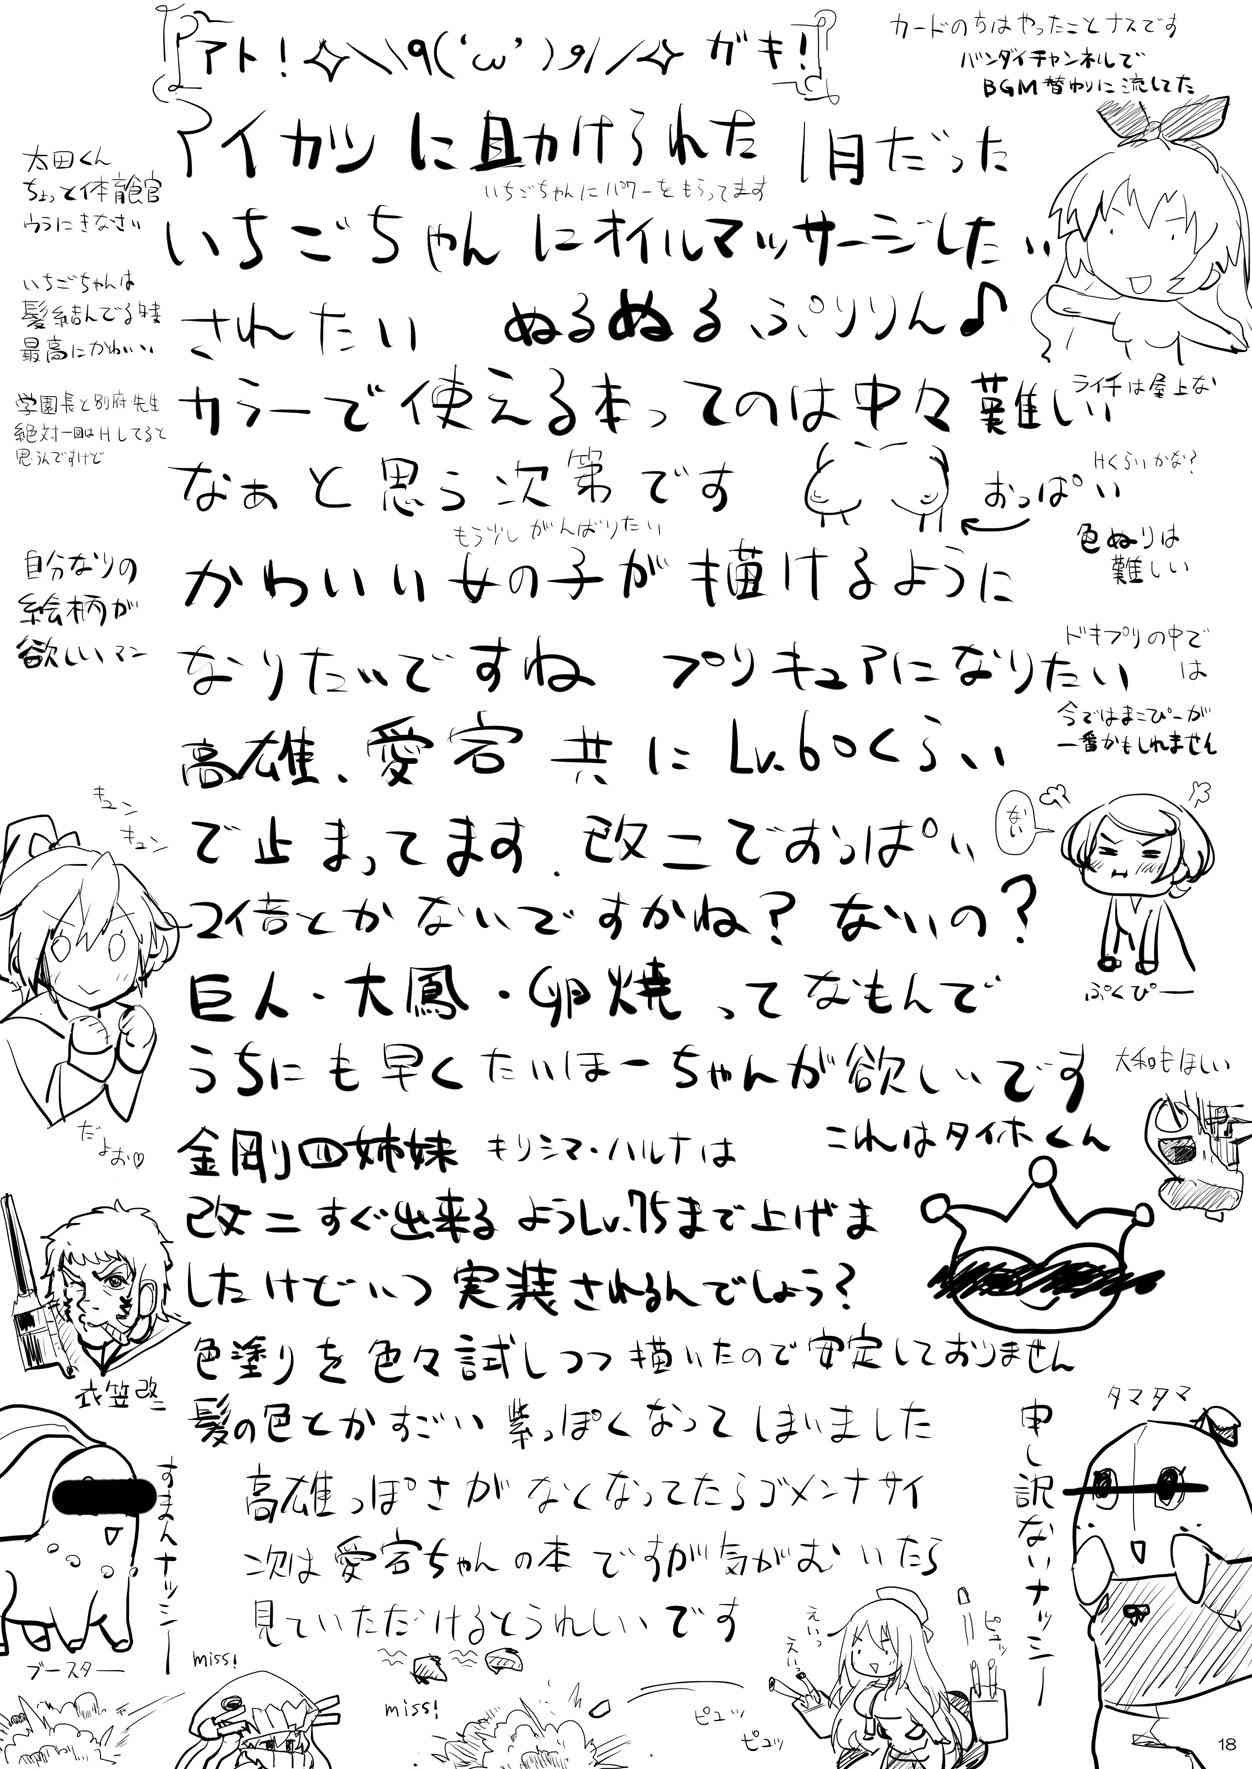 アト!✧＼\q('ω')و/／✧ ガキ!
カードのちはやったことナスです
バンダイチャンネルで
BGM替わりに流してた
アイカツに助けられた1月だった
いちごちゃんにパワーをもらってます
太田くん
ちょっと体育館
ウラにきなさい
いちごちゃんにオイルマッサージしたい
いちごちゃんは
髪結んでる時
最高にかわいい
されたい ぬるぬるぷりりん♪
学園長と別府先生
絶対一回はHしてると
思うんですけど
カラーで使える本ってのは中々難しい
ライチは屋上な
なぁと思う次第です
おっぱい
Hくらいかな?
もう少しがんばりたい
色ぬりは
難しい
自分なりの
絵柄が
欲しいマン
かわいい女の子が描けるように
なりたいですね プリキュアになりたい
ドキプリの中で
は
今ではまこぴーが
一番かもしれません
高雄、愛宕共にLv.60くらい
で止まってます. 改二でおっぱい
ない
キュン
キュン
2倍とかないですかね? ないの?
ぷくぴー
巨人・大鳳・卵焼ってなもんで
うちにも早くたいほーちゃんが欲しいです
大和もほしい
だよぉ♡
金剛四姉妹 キリシマ・ハルナは
これはタイホくん
改二すぐ出来るようLv.75まで上げま
したけどいつ実装されるんでしょう?
衣笠改二
色塗りを色々試しつつ描いたので安定しておりません
髪の色とかすごい紫っぽくなってしまいました
タマタマ
申し訳ないナッシー
すまんナッシー
ブースター
高雄っぽさがなくなってたらゴメンナサイ
次は愛宕ちゃんの本ですが気がむいたら
見ていただけるとうれしいです
miss!
miss!
えいっ
えいっ
ピュッ
ピュッ
ピュッ
18